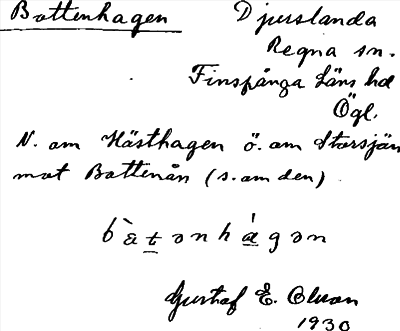 Bottenhagen
Djurslanda
Regna sn.
Finspånga läns hd
Ögl.
N. om Hästhagen ö. om Storsjön
mot Bottenån (s. om den)
bòtənhágən
Gustaf E. Olson
1930